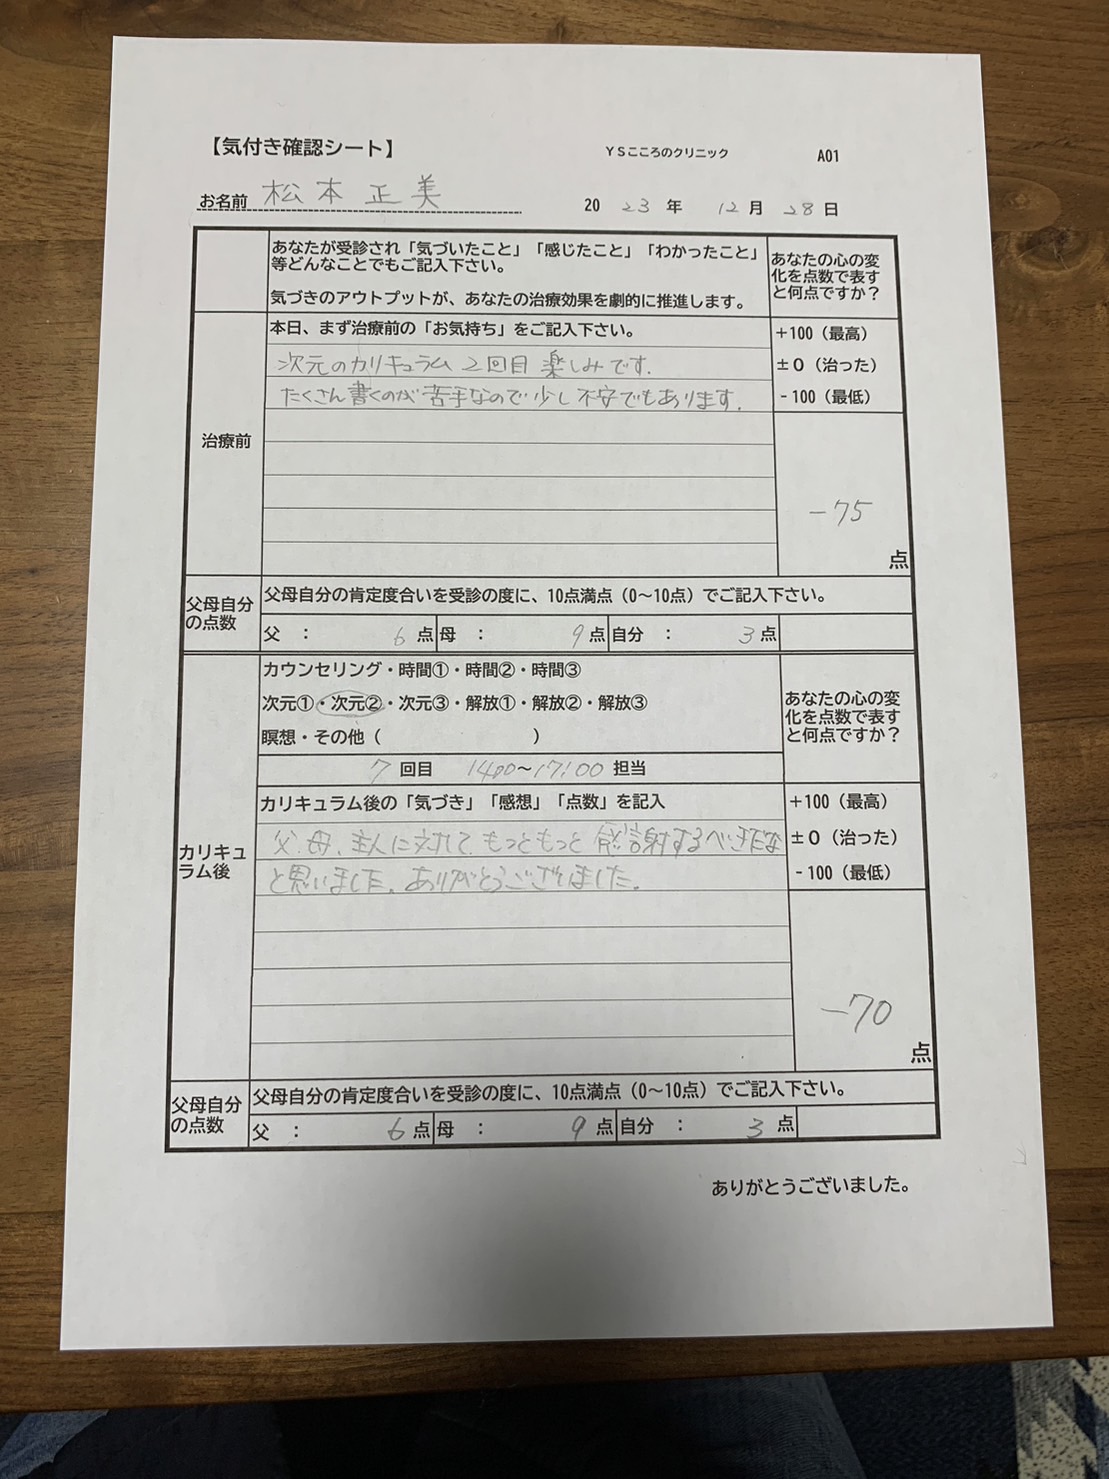 【気付き確認シート】 YSこころのクリニック A01
お名前 松本正美 2023年 12月 28日
あなたが受診され「気づいたこと」「感じたこと」「わかったこと」
等どんなことでもご記入下さい。
気づきのアウトプットが、あなたの治療効果を劇的に推進します。
あなたの心の変
化を点数で表す
と何点ですか？
治療前
本日、まず治療前の「お気持ち」をご記入下さい。
次元のカリキュラム2回目楽しみです。
たくさん書くのが苦手なので少し不安でもあります。
+100（最高）
±0（治った）
-100（最低）
-75
点
父母自分
の点数
父母自分の肯定度合いを受診の度に、10点満点（0～10点）でご記入下さい。
父 ： 6 点 母 ： 9 点 自分 ： 3 点
カリキュ
ラム後
カウンセリング・時間①・時間②・時間③
次元①・次元②・次元③・解放①・解放②・解放③
瞑想・その他（ ）
7 回目 14:00～17:00 担当
あなたの心の変
化を点数で表す
と何点ですか？
カリキュラム後の「気づき」「感想」「点数」を記入
父、母、主人に対して、もっともっと感謝するべきだな
と思いました。ありがとうございました。
+100（最高）
±0（治った）
-100（最低）
-70
点
父母自分
の点数
父母自分の肯定度合いを受診の度に、10点満点（0～10点）でご記入下さい。
父 ： 6 点 母 ： 9 点 自分 ： 3 点
ありがとうございました。